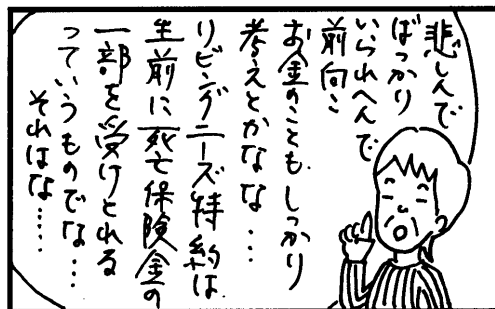 悲しんで
ばっかり
いられへんで
前向こ
お金のこともしっかり
考えとかなな…
リビングニーズ特約は
生前に死亡保険金の
一部を受けとれる
っていうものでな…
それはな……